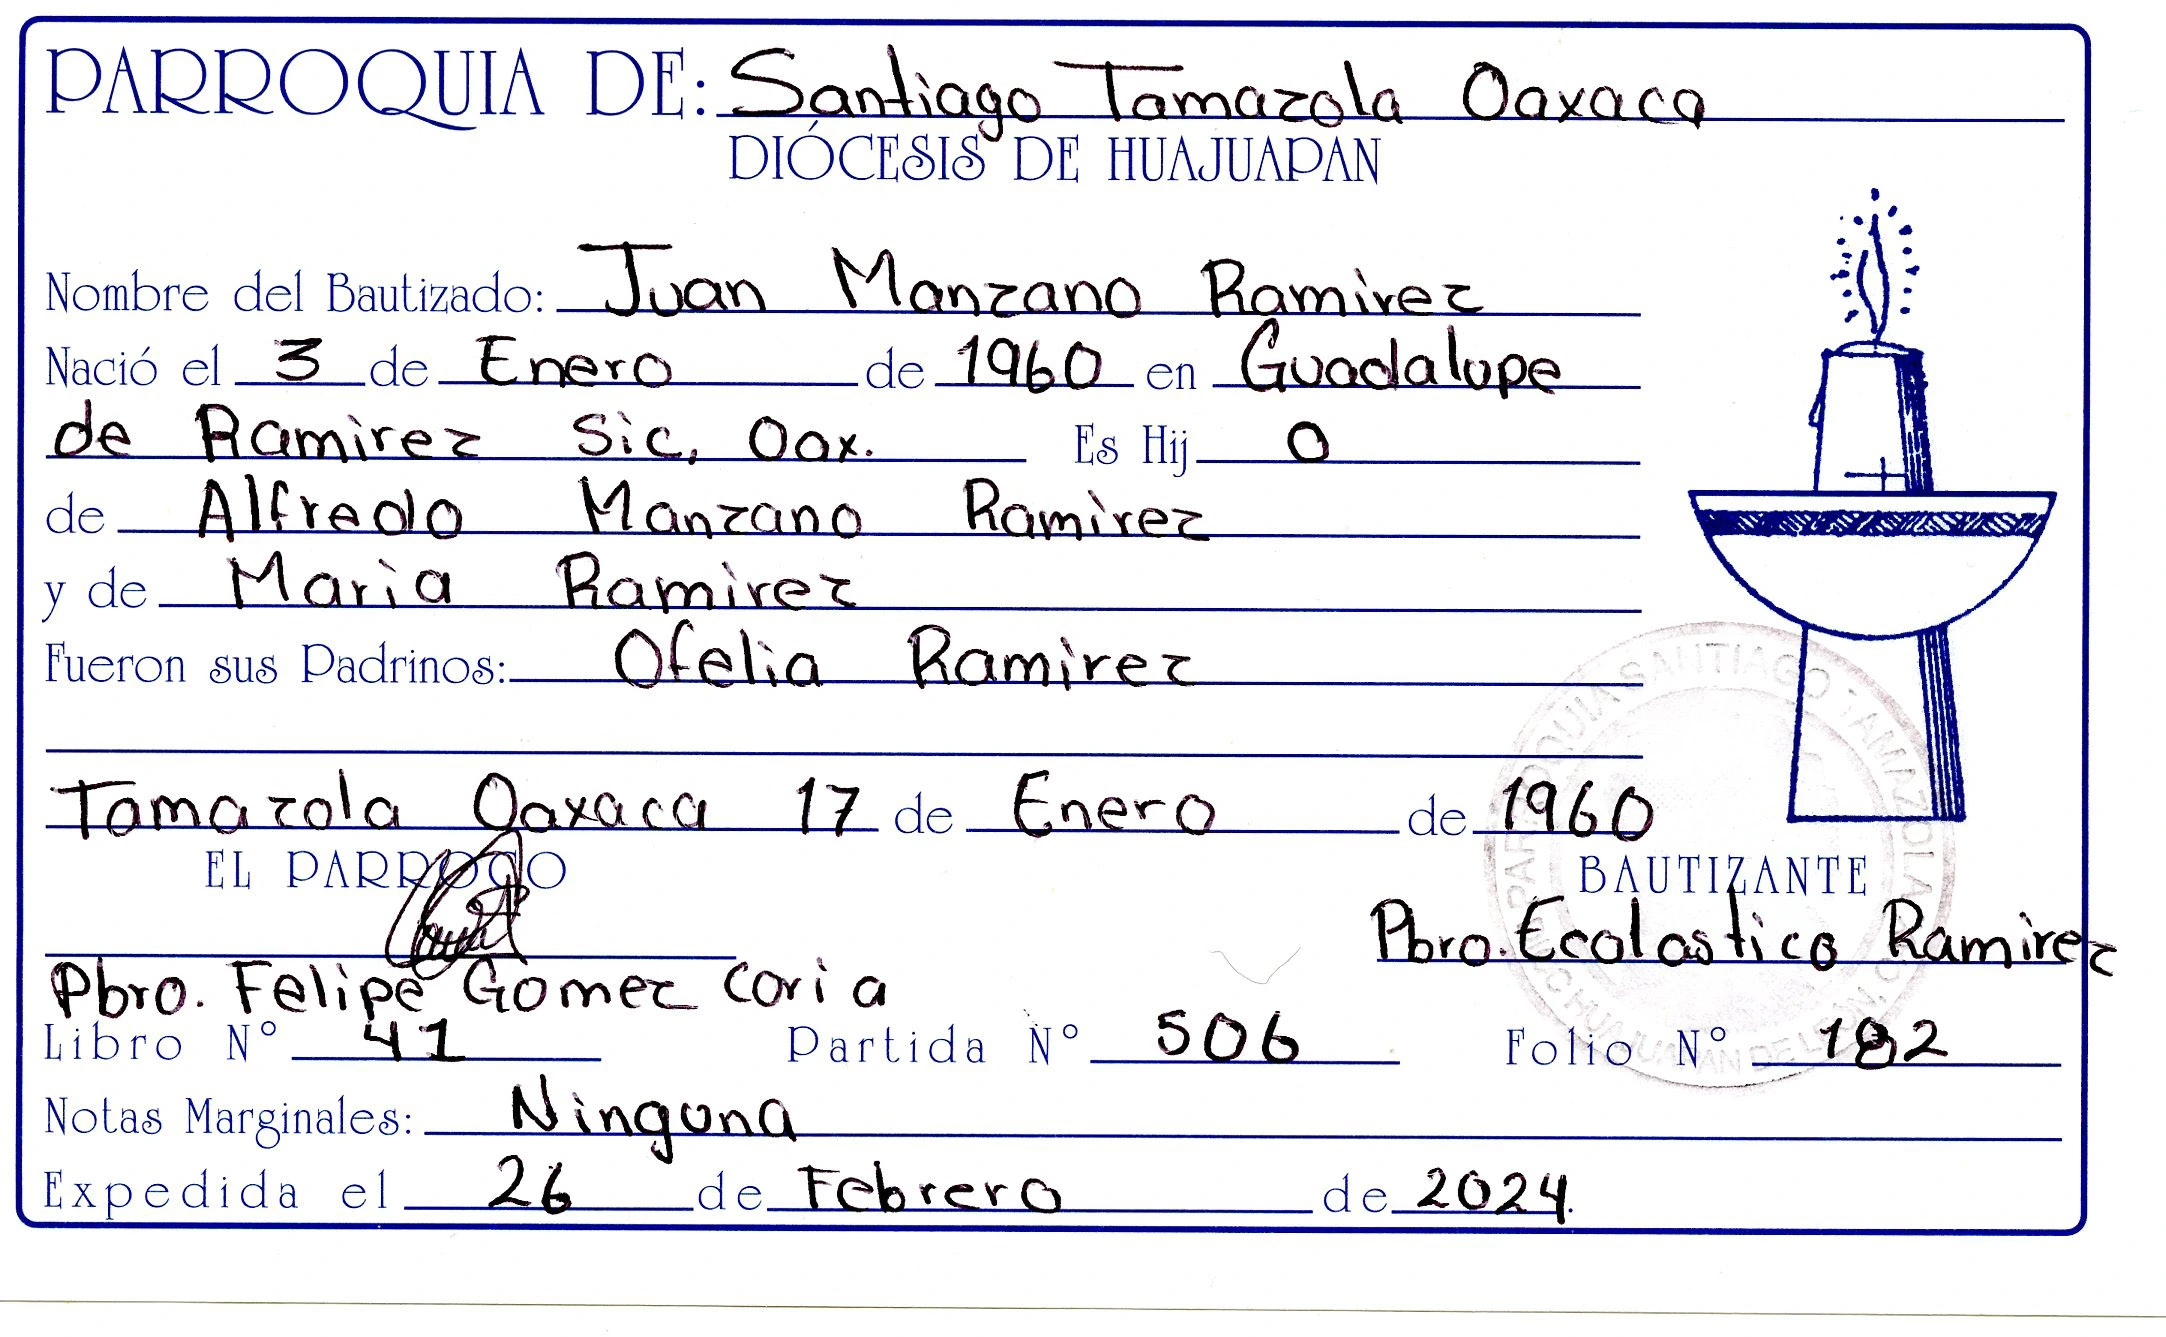 PARROQUIA DE: Santiago Tamazola Oaxaca
DIÓCESIS DE HUAJUAPAN
Nombre del Bautizado: Juan Manzano Ramirez
Nació el 3 de Enero de 1960 en Guadalupe
de Ramirez Sic, Oax. Es Hij o
de Alfredo Manzano Ramirez
y de Maria Ramirez
Fueron sus Padrinos: Ofelia Ramirez
Tamazola Oaxaca 17 de Enero de 1960
EL PARROCO BAUTIZANTE
Pbro. Ecolastico Ramirez
Pbro. Felipe Gomez Coria
Libro N° 41 Partida N° 506 Folio N° 182
Notas Marginales: Ninguna
Expedida el 26 de Febrero de 2024.
PARROQUIA SANTIAGO TAMAZOLA
HUAJUAPAN DE LEON, O